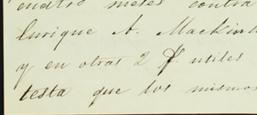 cuatro meses contra
Enrique A. Mackint
y en otras 2 f. utiles
testa que los mismos